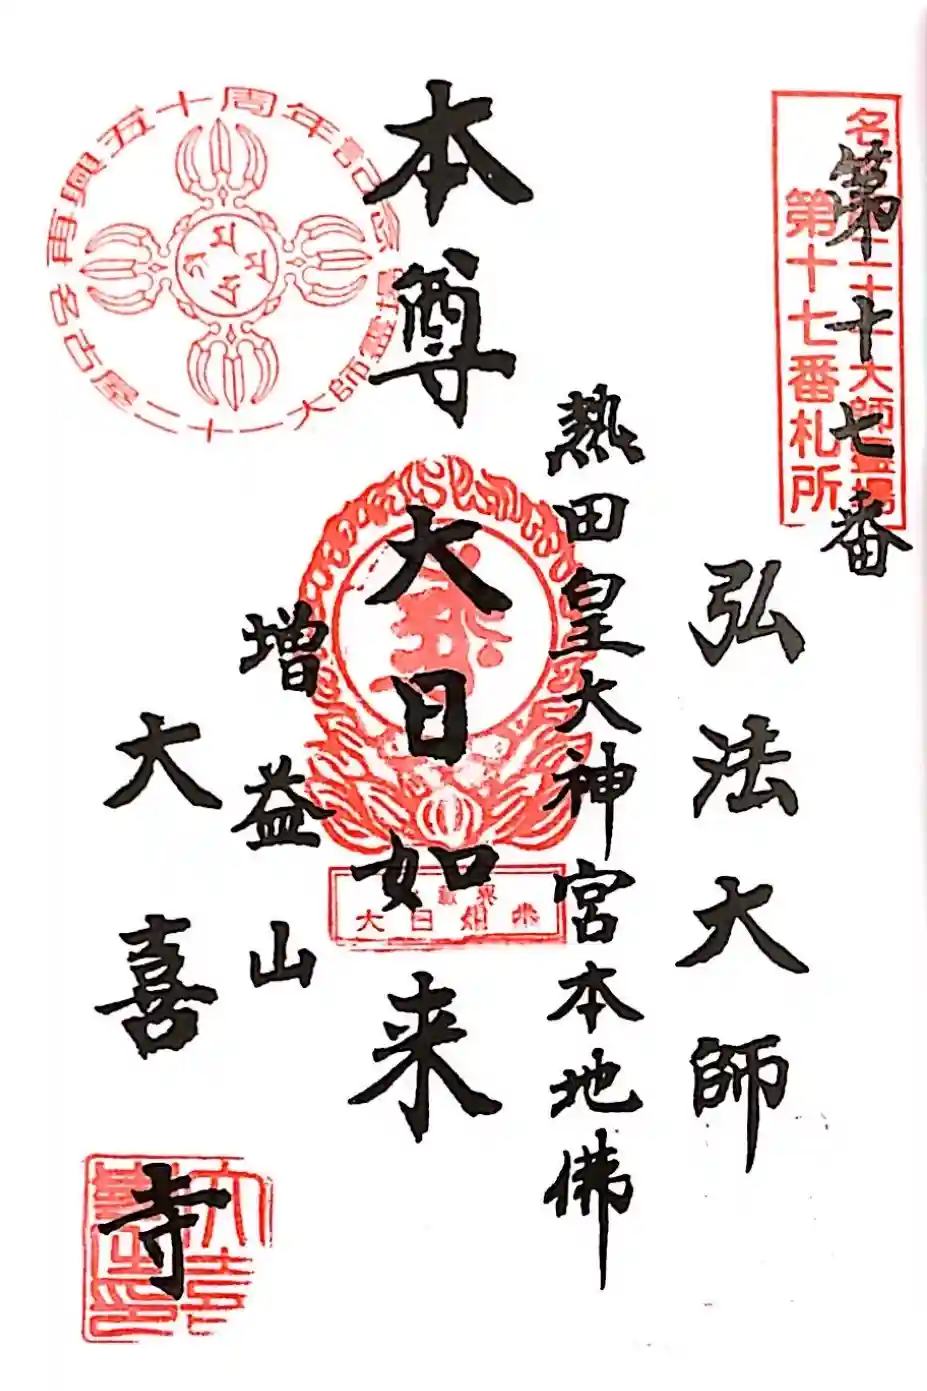 第十七番
名古屋二十一大師霊場
第十七番札所
弘法大師
熱田皇大神宮本地佛
本尊 大日如来
増益山
大喜寺
再興五十周年記念
名古屋二十一大師霊場